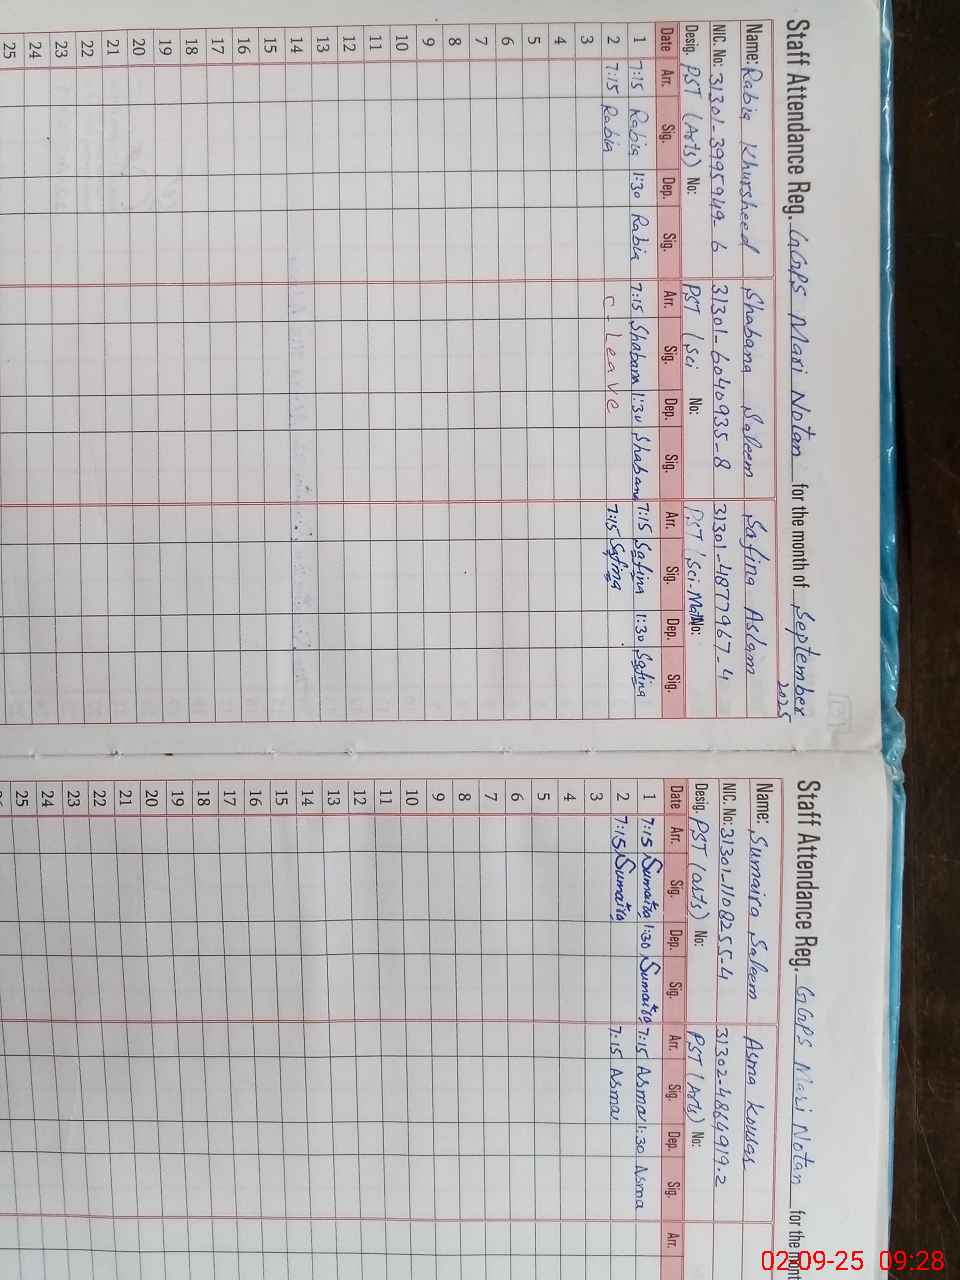 Staff Attendance Reg. GGPS Mari Notan for the month of September 2025
Name: Rabia Khursheed Shabana Saleem Safina Aslam
NIC. No: 31301-3995949-6 31301-6040935-8 31301-4877967-4
Desig. PST (Arts) No: PST (Sci No: PST (Sci-Math No:
Date Arr. Sig. Dep. Sig. Arr. Sig. Dep. Sig. Arr. Sig. Dep. Sig.
1 7:15 Rabia 1:30 Rabia 7:15 Shabana 1:30 Shabana 7:15 Safina 1:30 Safina
2 7:15 Rabia C-Leave 7:15 Safina
3
4
5
6
7
8
9
10
11
12
13
14
15
16
17
18
19
20
21
22
23
24
25
Staff Attendance Reg. GGPS Mari Notan for the mont
Name: Sumaira Saleem Asma Kousar
NIC. No: 31301-1108255-4 31302-4864919-2
Desig. PST (Arts) No: PST (Arts) No:
Date Arr. Sig. Dep. Sig. Arr. Sig. Dep. Sig. Arr.
1 7:15 Sumaira 1:30 Sumaira 7:15 Asma 1:30 Asma
2 7:15 Sumaira 7:15 Asma
3
4
5
6
7
8
9
10
11
12
13
14
15
16
17
18
19
20
21
22
23
24
25
02-09-25 09:28